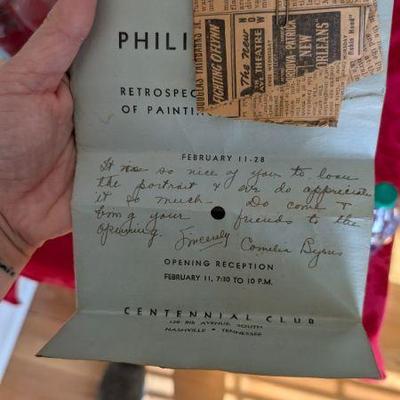 PHILI
RETROSPEC
OF PAINTIN
DOUGLAS FAIRBANKS
FIGHTING O'FLYNN
The new
AV THEATRE
PATRIC
"NEW
ORLEANS"
FEBRUARY 11-28
It was so nice of you to loan
the portrait & we do appreciate
it so much. Do come &
bring your friends to the
opening. Sincerely Cornelia Byrns
OPENING RECEPTION
FEBRUARY 11, 7:30 TO 10 P.M.
CENTENNIAL CLUB
8th AVENUE SOUTH
NASHVILLE • TENNESSEE